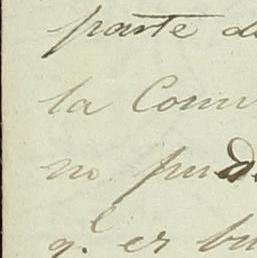 parte de
la Com
no pude
q.^e es bu